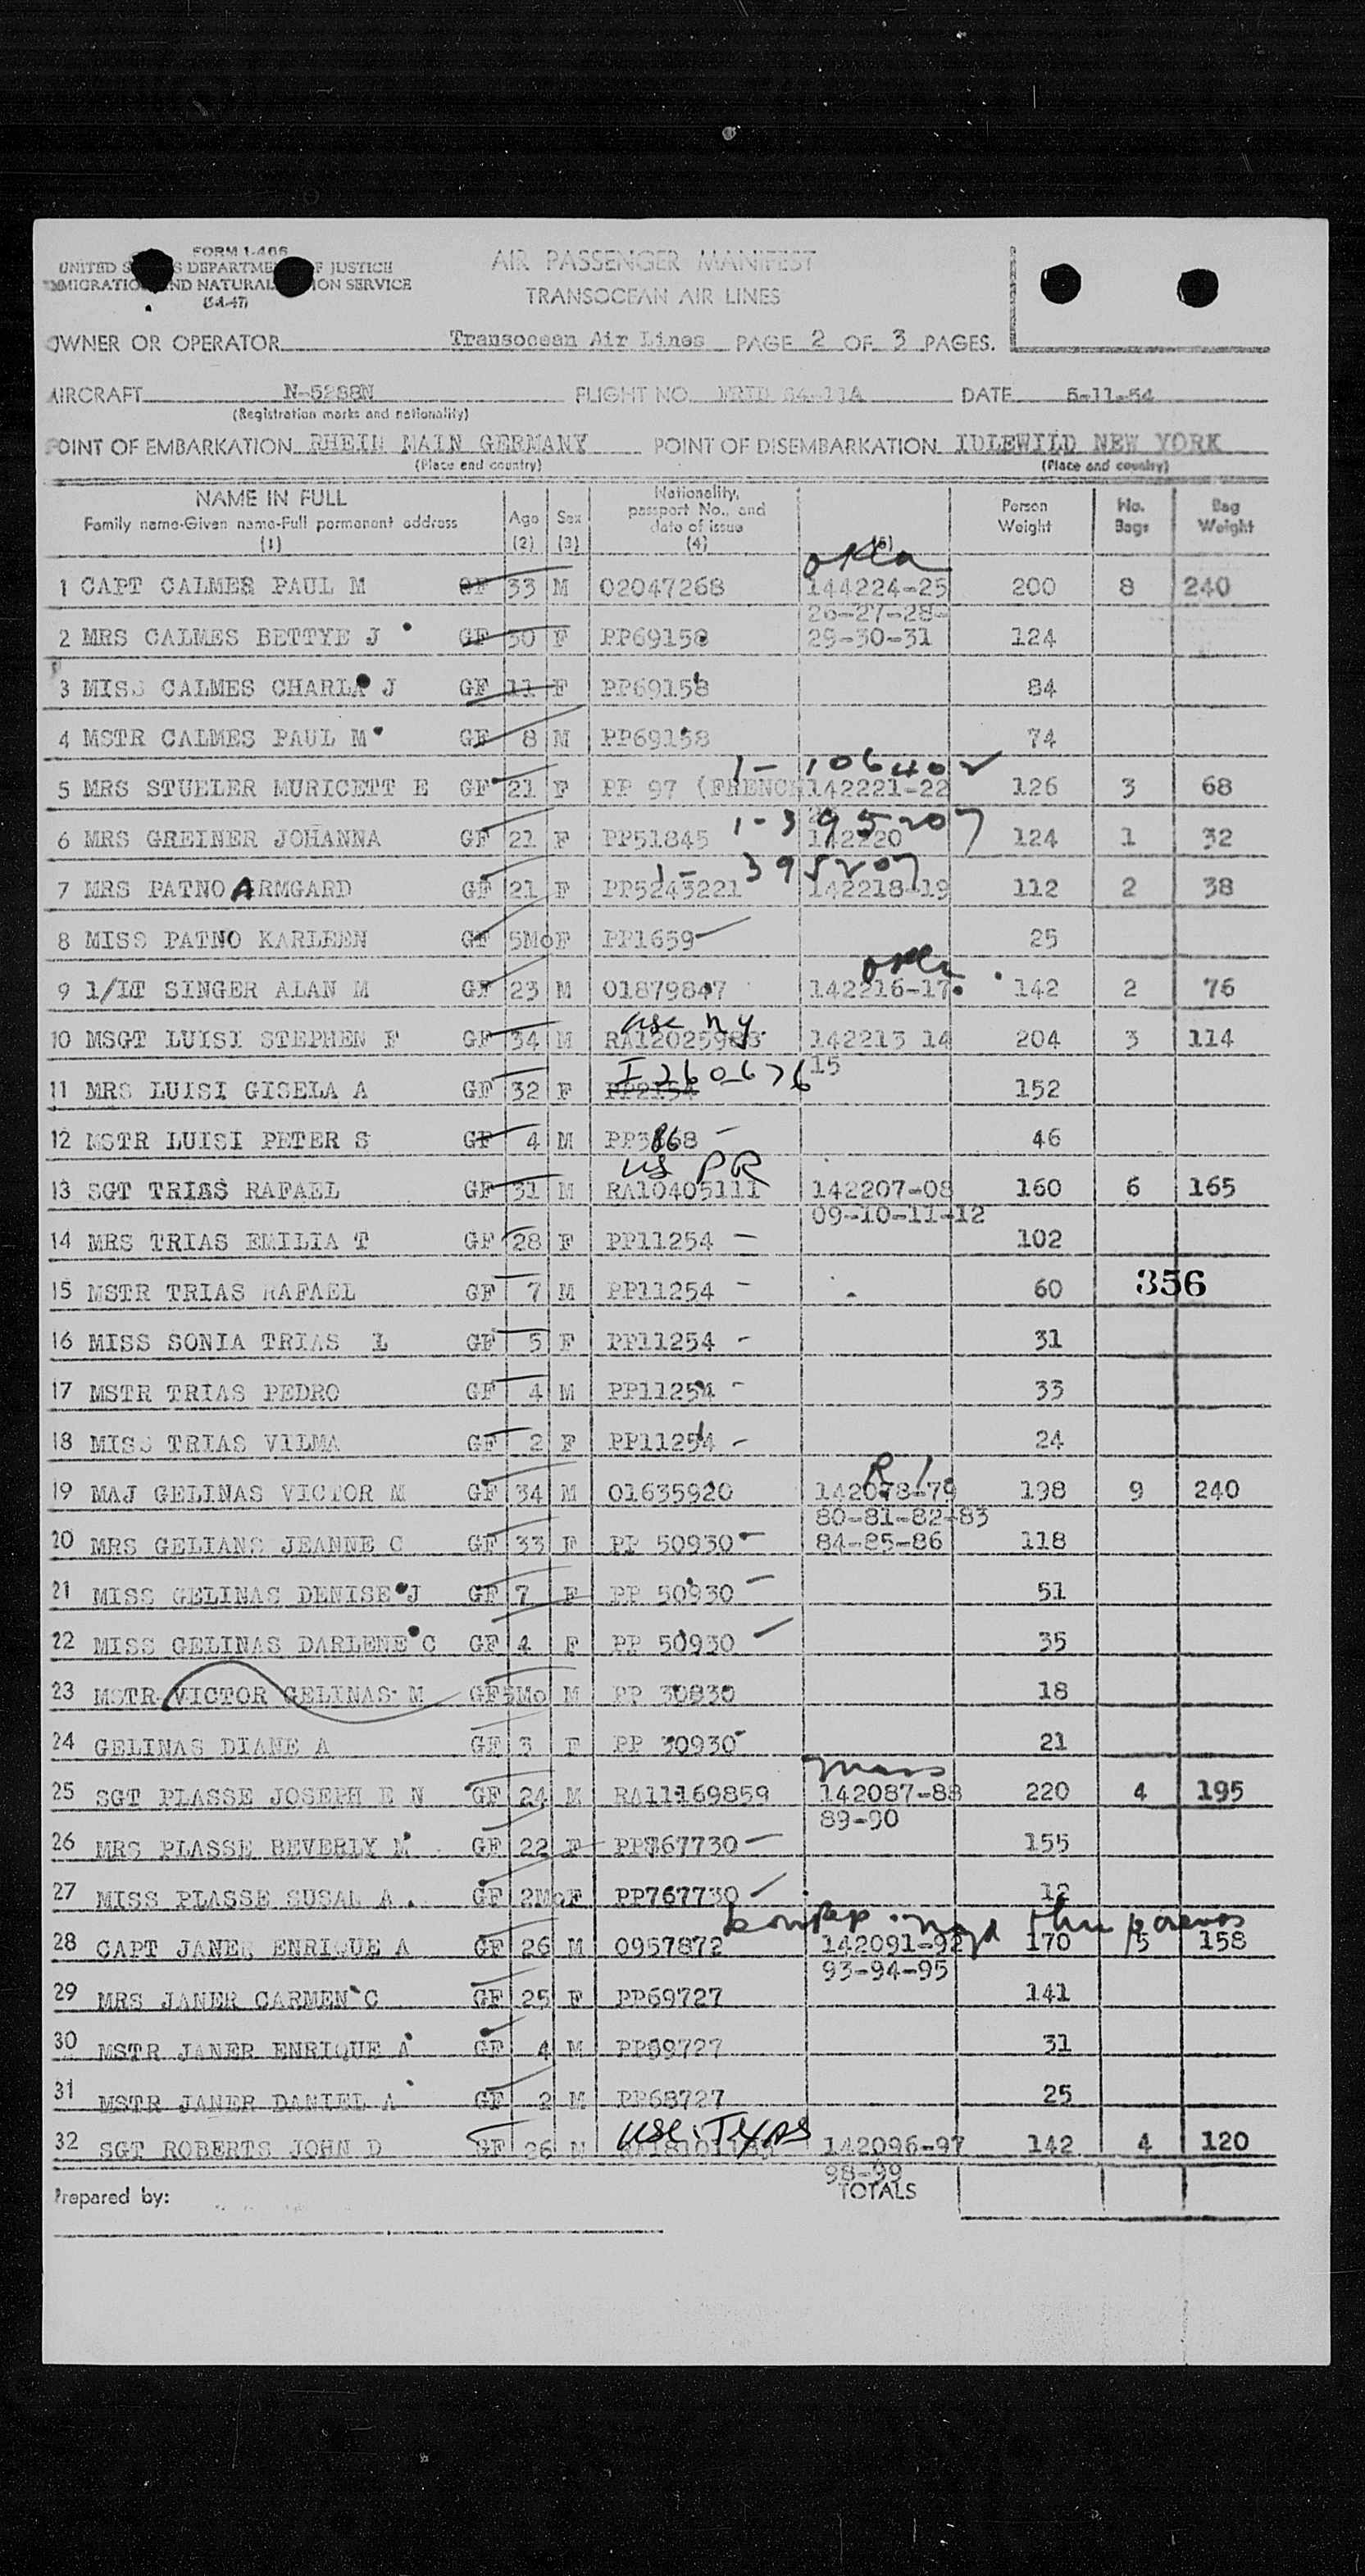 FORM 1-466
UNITED S S DEPARTME F JUSTICE
MMIGRATIO ND NATURAL ION SERVICE
(5-1-47)
AIR PASSENGER MANIFEST
TRANSOCEAN AIR LINES
OWNER OR OPERATOR Transocean Air Lines PAGE 2 OF 3 PAGES.
AIRCRAFT N-5288N FLIGHT NO. 64-11A DATE 5-11-54
(Registration marks and nationality)
POINT OF EMBARKATION RHEIN MAIN GERMANY POINT OF DISEMBARKATION IDLEWILD NEW YORK
(Place and country) (Place and country)
NAME IN FULL
Family name-Given name-Full permanent address
(1)
Age
(2)
Sex
(3)
Nationality,
passport No., and
date of issue
(4)
(5)
Person
Weight
No.
Bags
Bag
Weight
okla
1 CAPT CALMES PAUL M GF 33 M 02047268 144224-25 200 8 240
26-27-28-
2 MRS CALMES BETTYE J GF 30 F PP69158 29-30-31 124
3 MISS CALMES CHARLA J GF 11 F PP69158 84
4 MSTR CALMES PAUL M GF 8 M PP69158 74
1-106402
5 MRS STUELER MURICETT E GF 21 F PP 97 (FRENCH 142221-22 126 3 68
1-395207
6 MRS GREINER JOHANNA GF 21 F PP51845 142220 124 1 32
1-395207
7 MRS PATNO ARMGARD GF 21 F PP5243221 142218-19 112 2 38
8 MISS PATNO KARLEEN GF 5Mo F PP1659 25
9 1/LT SINGER ALAN M GF 23 M 01879847 142216-17 142 2 76
usc ny.
10 MSGT LUISI STEPHEN F GF 34 M RA12025983 142213 14 204 3 114
15
I260676
11 MRS LUISI GISELA A GF 32 F PP2154 152
12 MSTR LUISI PETER S GF 4 M PP3868 46
us PR
13 SGT TRIAS RAFAEL GF 31 M RA10405111 142207-08 160 6 165
09-10-11-12
14 MRS TRIAS EMILIA T GF 28 F PP11254 102
15 MSTR TRIAS RAFAEL GF 7 M PP11254 60 356
16 MISS SONIA TRIAS L GF 5 F PP11254 31
17 MSTR TRIAS PEDRO GF 4 M PP11254 33
18 MISS TRIAS VILMA GF 2 F PP11254 24
R I
19 MAJ GELINAS VICTOR M GF 34 M 01635920 142078-79 198 9 240
80-81-82-83
20 MRS GELIANS JEANNE C GF 33 F PP 50930 84-85-86 118
21 MISS GELINAS DENISE J GF 7 F PP 50930 51
22 MISS GELINAS DARLENE C GF 4 F PP 50930 35
23 MSTR VICTOR GELINAS M GF 5Mo M PP 30830 18
24 GELINAS DIANE A GF 3 F PP 30930 21
mass
25 SGT PLASSE JOSEPH E N GF 24 M RA11169859 142087-88 220 4 195
89-90
26 MRS PLASSE BEVERLY GF 22 F PP767730 155
27 MISS PLASSE SUSAN A. GF 2Mo F PP767730 12
thru parents
28 CAPT JANER ENRIQUE A GF 26 M 0957872 142091-92 170 5 158
93-94-95
29 MRS JANER CARMEN C GF 25 F PP69727 141
30 MSTR JANER ENRIQUE A GF 4 M PP69727 31
31 MSTR JANER DANIEL A GF 2 M PP68727 25
usc. Texas
32 SGT ROBERTS JOHN D GF 26 M 142096-97 142 4 120
98-99
Prepared by: TOTALS